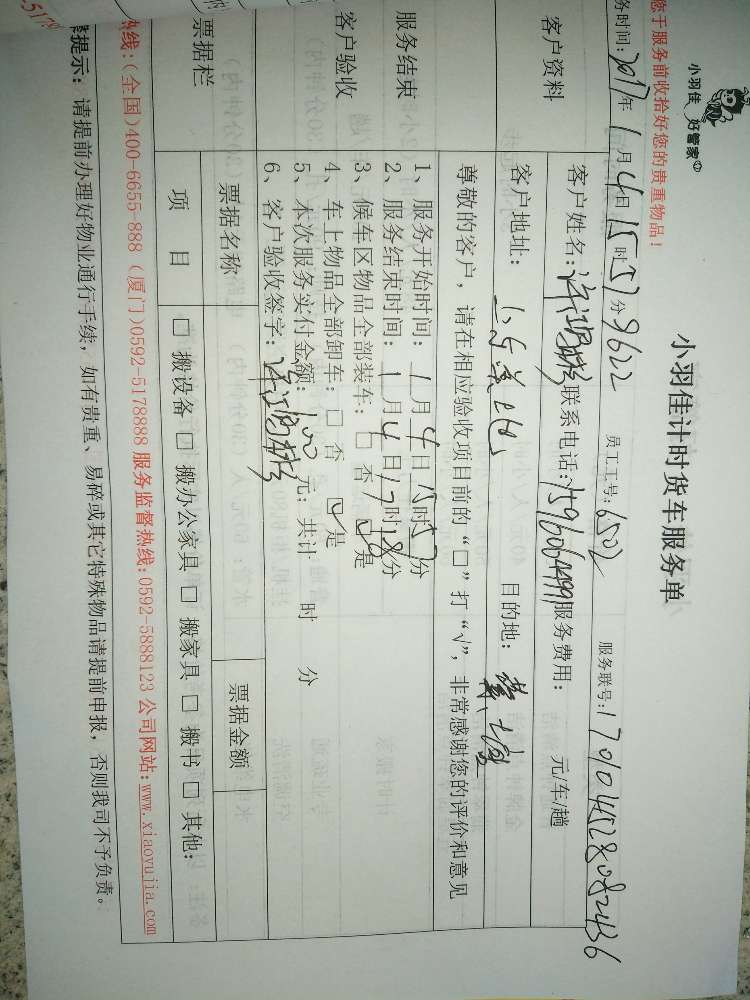 小羽佳 好管家
小羽佳计时货车服务单
您于服务前收拾好您的贵重物品！
务时间: 2017年 1月4日 15时57分 9622 员工工号: 6502 服务联号: 170104528082436
客户资料
客户姓名: 联系电话: 15960614991 服务费用: 元/车/趟
客户地址: 目的地:
尊敬的客户，请在相应验收项目前的“□”打“√”，非常感谢您的评价和意见
服务结束
客户验收
1、服务开始时间: 1月4日15时57分
2、服务结束时间: 1月4日17时28分
3、候车区物品全部装车: □ 否 ☑是
4、车上物品全部卸车: □ 否 ☑是
5、本次服务实付金额: 100 元; 共计 时 分
6、客户验收签字:
票据栏
票据名称 票据金额
项 目 □ 搬设备 □ 搬办公家具 □ 搬家具 □ 搬书 □ 其他:
热线:(全国)400-6655-888 (厦门)0592-5178888 服务监督热线:0592-5888123 公司网站:www.xiaoyujia.com
提示: 请提前办理好物业通行手续，如有贵重、易碎或其它特殊物品请提前申报，否则我司不予负责。